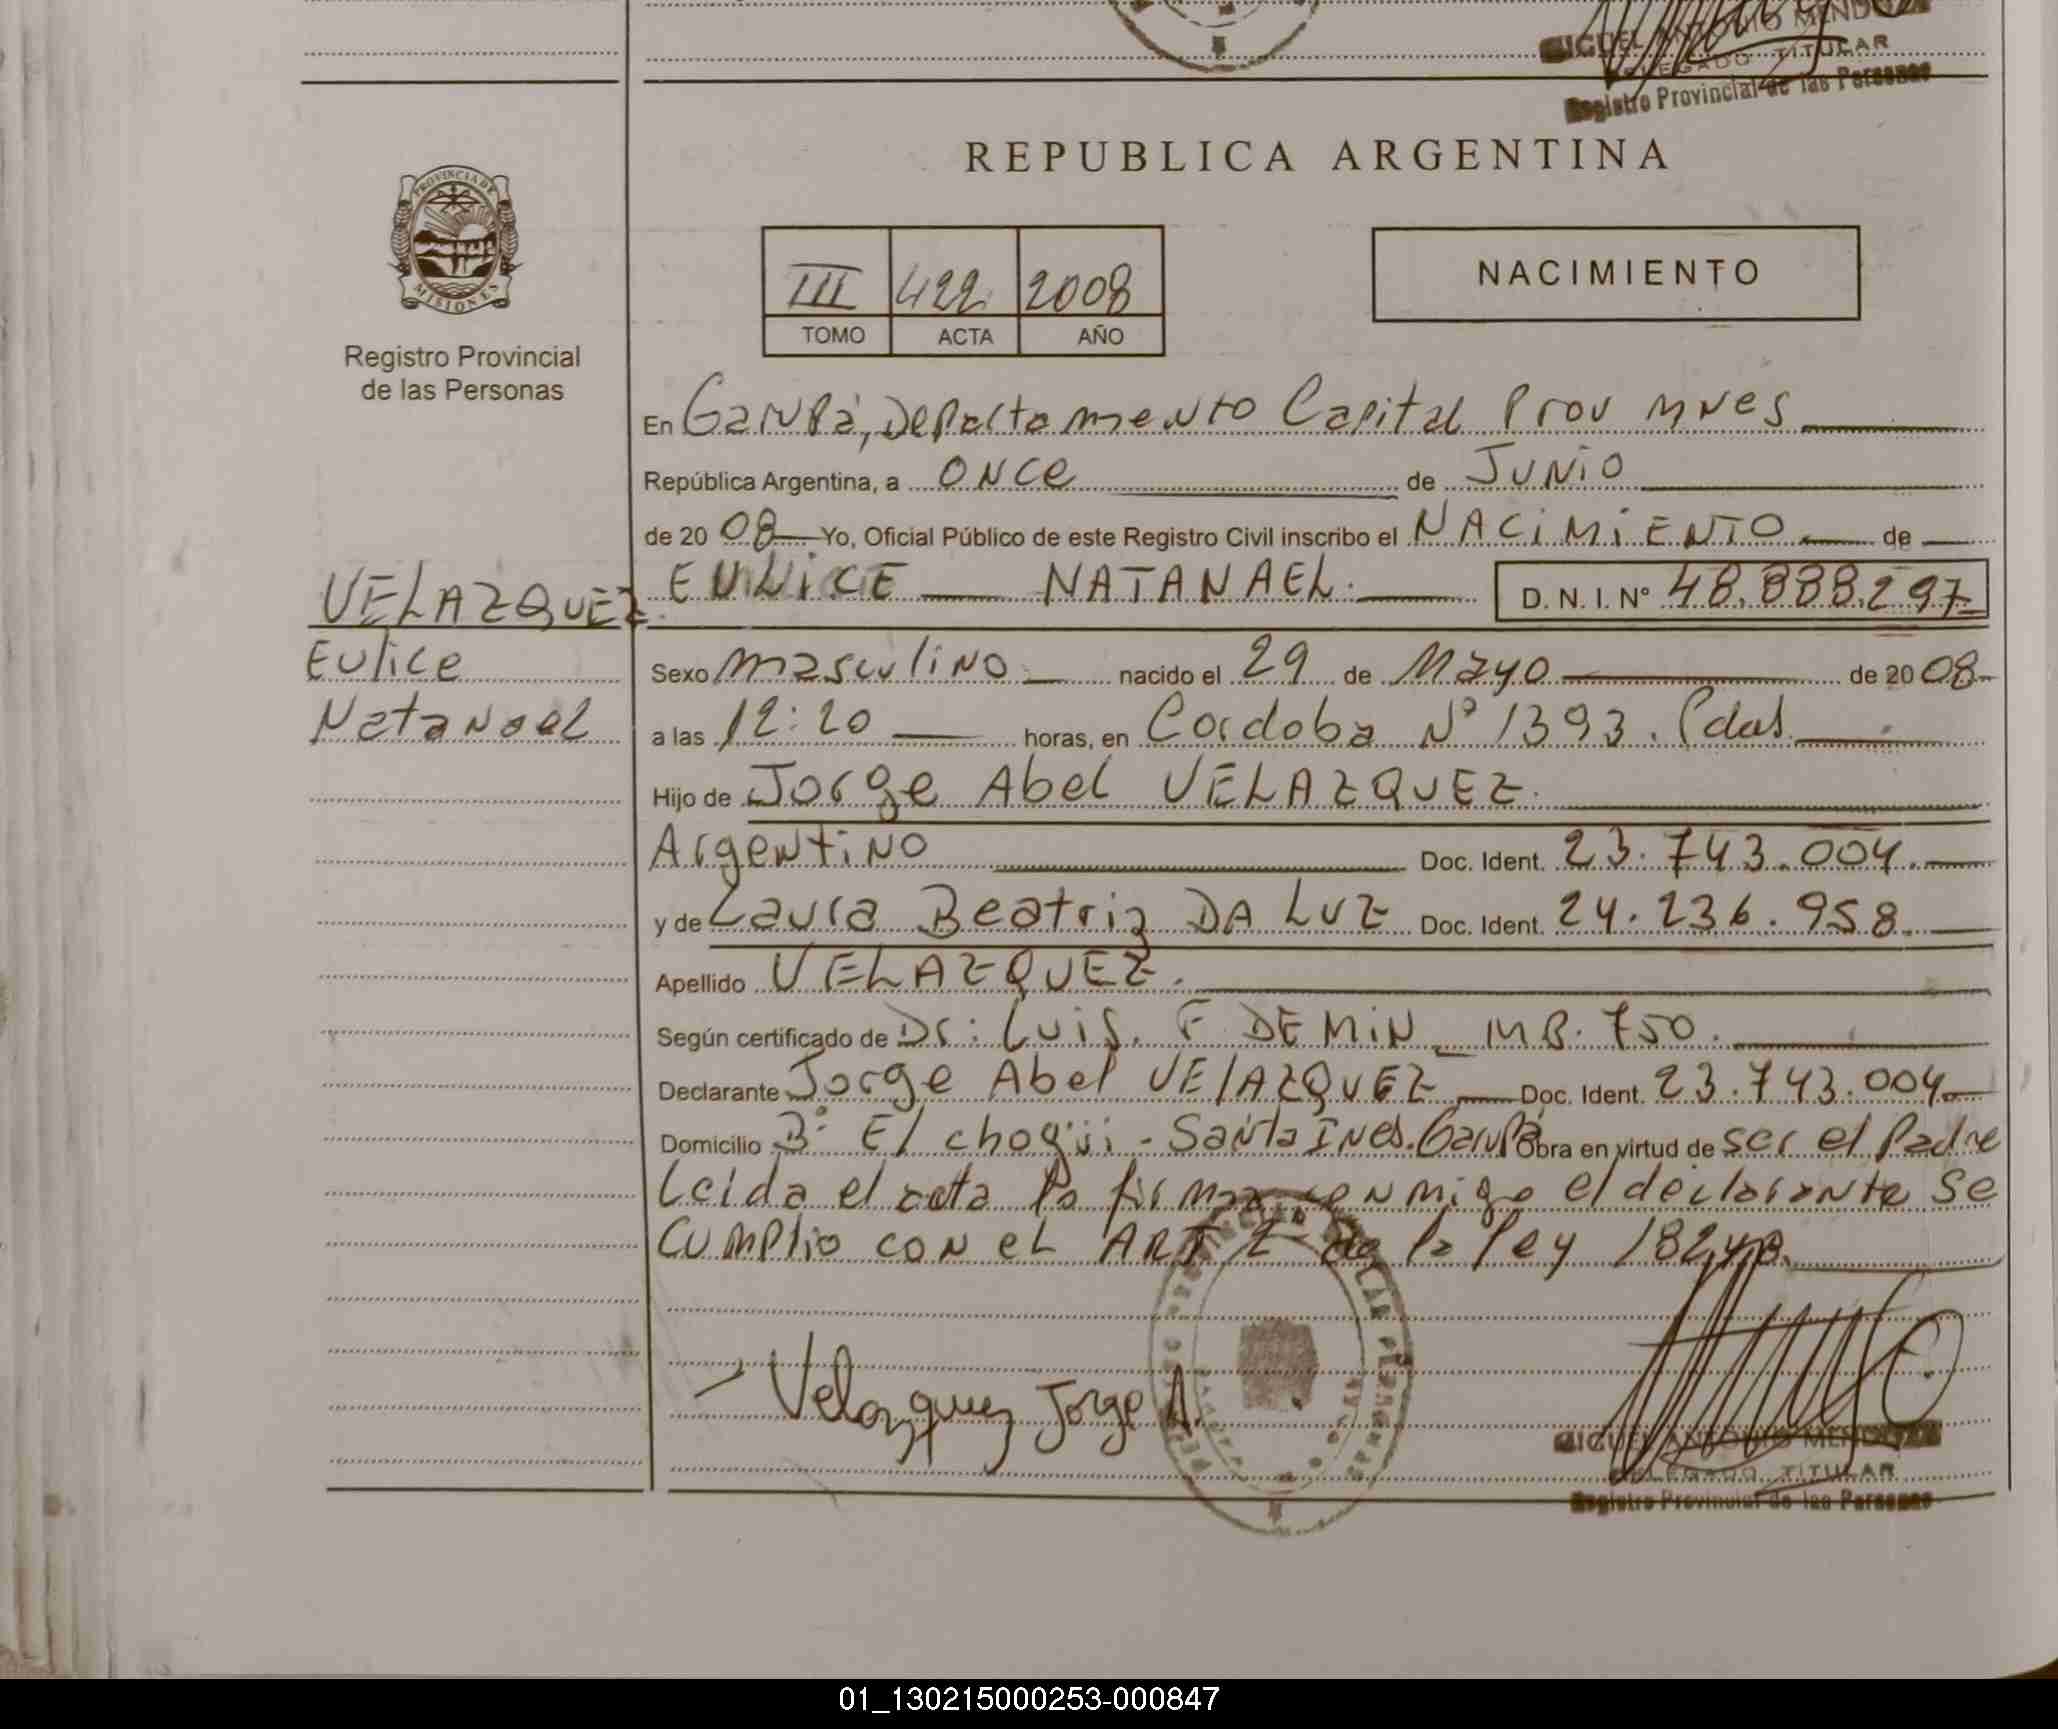 MIGUEL ANTONIO MENDOZA
DELEGADO TITULAR
Registro Provincial de las Personas
REPUBLICA ARGENTINA
PROVINCIA DE
MISIONES
Registro Provincial
de las Personas
III 422 2008
TOMO ACTA AÑO
NACIMIENTO
En Garupá, Departamento Capital Prov Mnes
República Argentina, a once de Junio
de 20 08 Yo, Oficial Público de este Registro Civil inscribo el NACIMIENTO de
VELAZQUEZ
Eulice
Natanael
EULICE NATANAEL. D. N. I. Nº 48.888.297
Sexo masculino nacido el 29 de Mayo de 20 08
a las 12:20 horas, en Cordoba Nº 1393. Pdas.
Hijo de Jorge Abel VELAZQUEZ.
Argentino Doc. Ident. 23.743.004.
y de Laura Beatriz DA LUZ Doc. Ident. 24.236.958.
Apellido VELAZQUEZ.
Según certificado de Dr: Luis. F DEMIN_ MB. 750.
Declarante Jorge Abel VELAZQUEZ Doc. Ident. 23.743.004
Domicilio Bº El chogüi - Santa Ines. Garupá Obra en virtud de ser el Padre
Leida el acta la firma conmigo el declarante Se
cumplio con el ART 2 de la ley 18248.
Velazquez Jorge A.
MIGUEL ANTONIO MENDOZA
DELEGADO TITULAR
Registro Provincial de las Personas
01_130215000253-000847